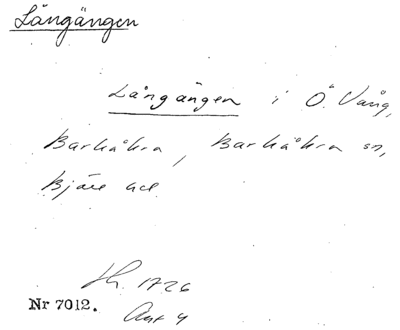 Långängen
Långängen i Ö. Vång,
Barkåkra, Barkåkra sn,
Bjäre hd.
1726
Nr 7012. Akt 4